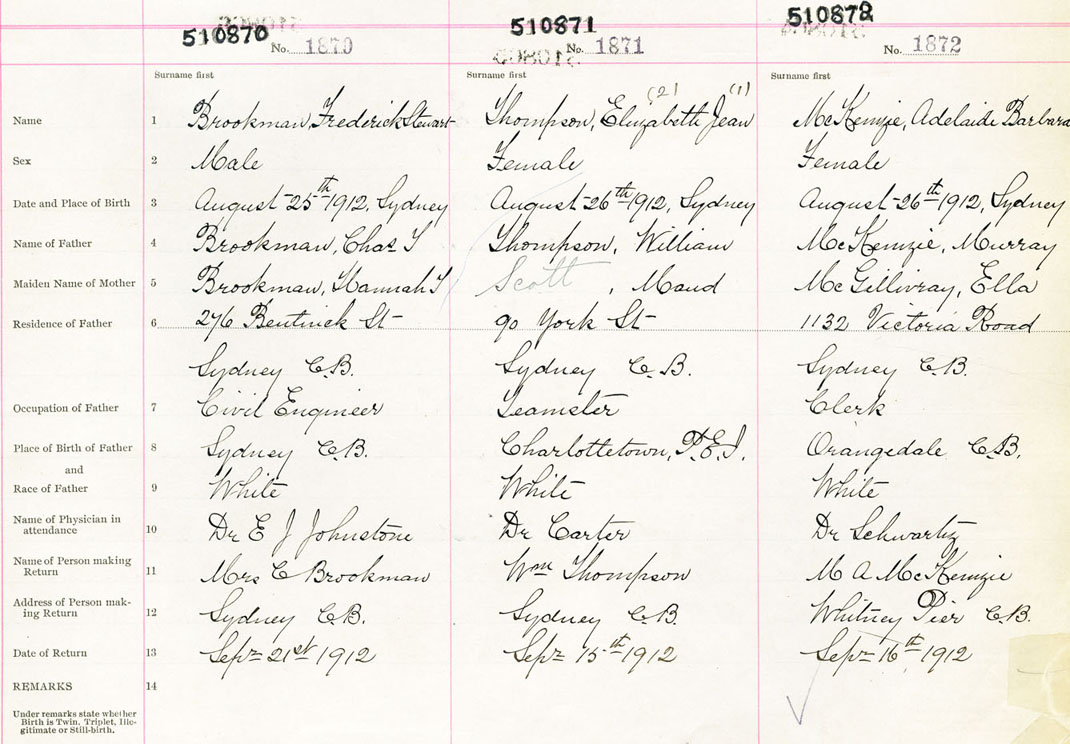 510870 510871 510872
No. 1870 No. 1871 No. 1872
Surname first Surname first Surname first
(2) (1)
Name 1 Brookman, Frederick Stewart Thompson, Elizabeth Jean McKenzie, Adelaide Barbara
Sex 2 Male Female Female
Date and Place of Birth 3 August 25th 1912, Sydney August 26th 1912, Sydney August 26th 1912, Sydney
Name of Father 4 Brookman, Chas T Thompson, William McKenzie, Murray
Maiden Name of Mother 5 Brookman, Hannah T Scott, Maud McGillivray, Ella
Residence of Father 6 276 Bentinck St 90 York St 1132 Victoria Road
Sydney C.B. Sydney C.B. Sydney C.B.
Occupation of Father 7 Civil Engineer Teamster Clerk
Place of Birth of Father 8 Sydney C.B. Charlottetown, P.E.I. Orangedale C.B.
and
Race of Father 9 White White White
Name of Physician in
attendance 10 Dr E J Johnstone Dr Carter Dr Schwartz
Name of Person making
Return 11 Mrs C Brookman Wm Thompson M A McKenzie
Address of Person mak-
ing Return 12 Sydney C.B. Sydney C.B. Whitney Pier C.B.
Date of Return 13 Sept 21st 1912 Sept 15th 1912 Sept 16th 1912
REMARKS 14
Under remarks state whether
Birth is Twin, Triplet, Ille-
gitimate or Still-birth.